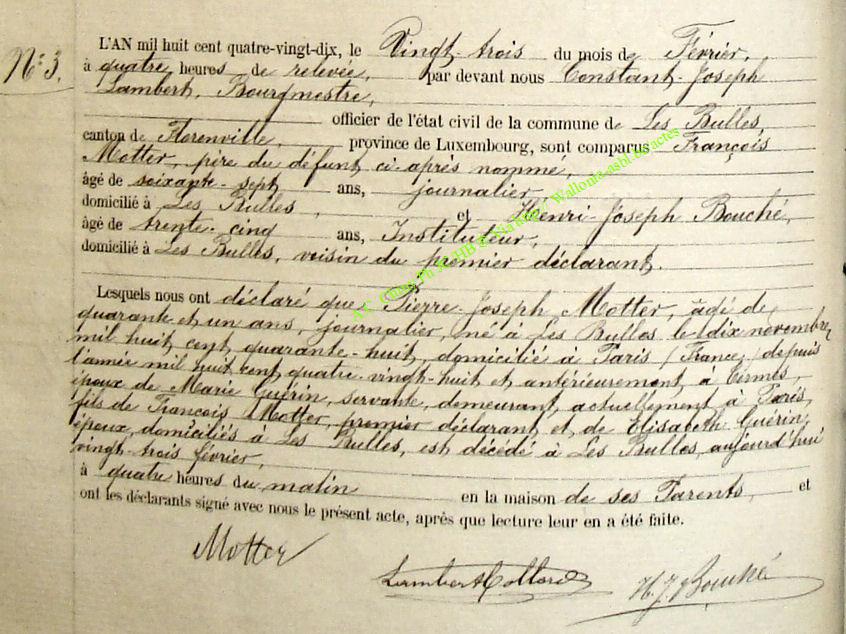 N° 3.
L'AN mil huit cent quatre-vingt-dix, le Vingt-trois du mois de Février,
à quatre heures de relevée, par devant nous Constant-Joseph
Lambert, Bourgmestre,
officier de l'état civil de la commune de Les Bulles
canton de Florenville, province de Luxembourg, sont comparus François
Motter, père du défunt ci-après nommé,
âgé de soixante-sept ans, journalier,
domicilié à Les Bulles, et Henri-Joseph Bouché,
âgé de trente-cinq ans, Instituteur,
domicilié à Les Bulles, voisin du premier déclarant.
Lesquels nous ont déclaré que Pierre-Joseph Motter, âgé de
quarante et un ans, journalier, né à Les Bulles le dix novembre
mil huit cent quarante-huit, domicilié à Paris (France) depuis
l'année mil huit cent quatre-vingt-huit et antérieurement à Termes,
époux de Marie Guérin, servante, demeurant actuellement à Paris,
fils de François Motter, premier déclarant et de Elisabeth Guérin,
époux, domiciliés à Les Bulles, est décédé à Les Bulles, aujourd'hui
vingt-trois février,
à quatre heures du matin en la maison de ses Parents, et
ont les déclarants signé avec nous le présent acte, après que lecture leur en a été faite.
Motter
Lambert
H. J. Bouché
Wallonia-asbl.be/actes